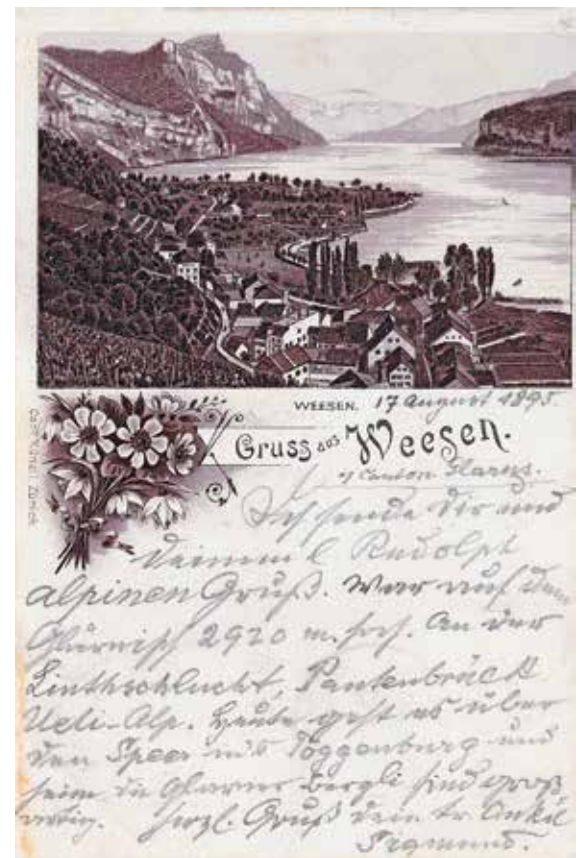 WEESEN. 17 August 1895.
Gruss aus Weesen.
Canton Glarus.
Ich sende Dir und
Deinem l Rudolph
alpinen Gruß. War auf dem
Glärnisch 2920 m. hoch. An der
Linthschlucht, Pantenbrück
Ueli-Alp. Heute geht es über
den Speer ins Toggenburg und
heim die Glarner Bergli sind groß
artig. herzl. Gruß Dein tr. Onkel
Sigmund.